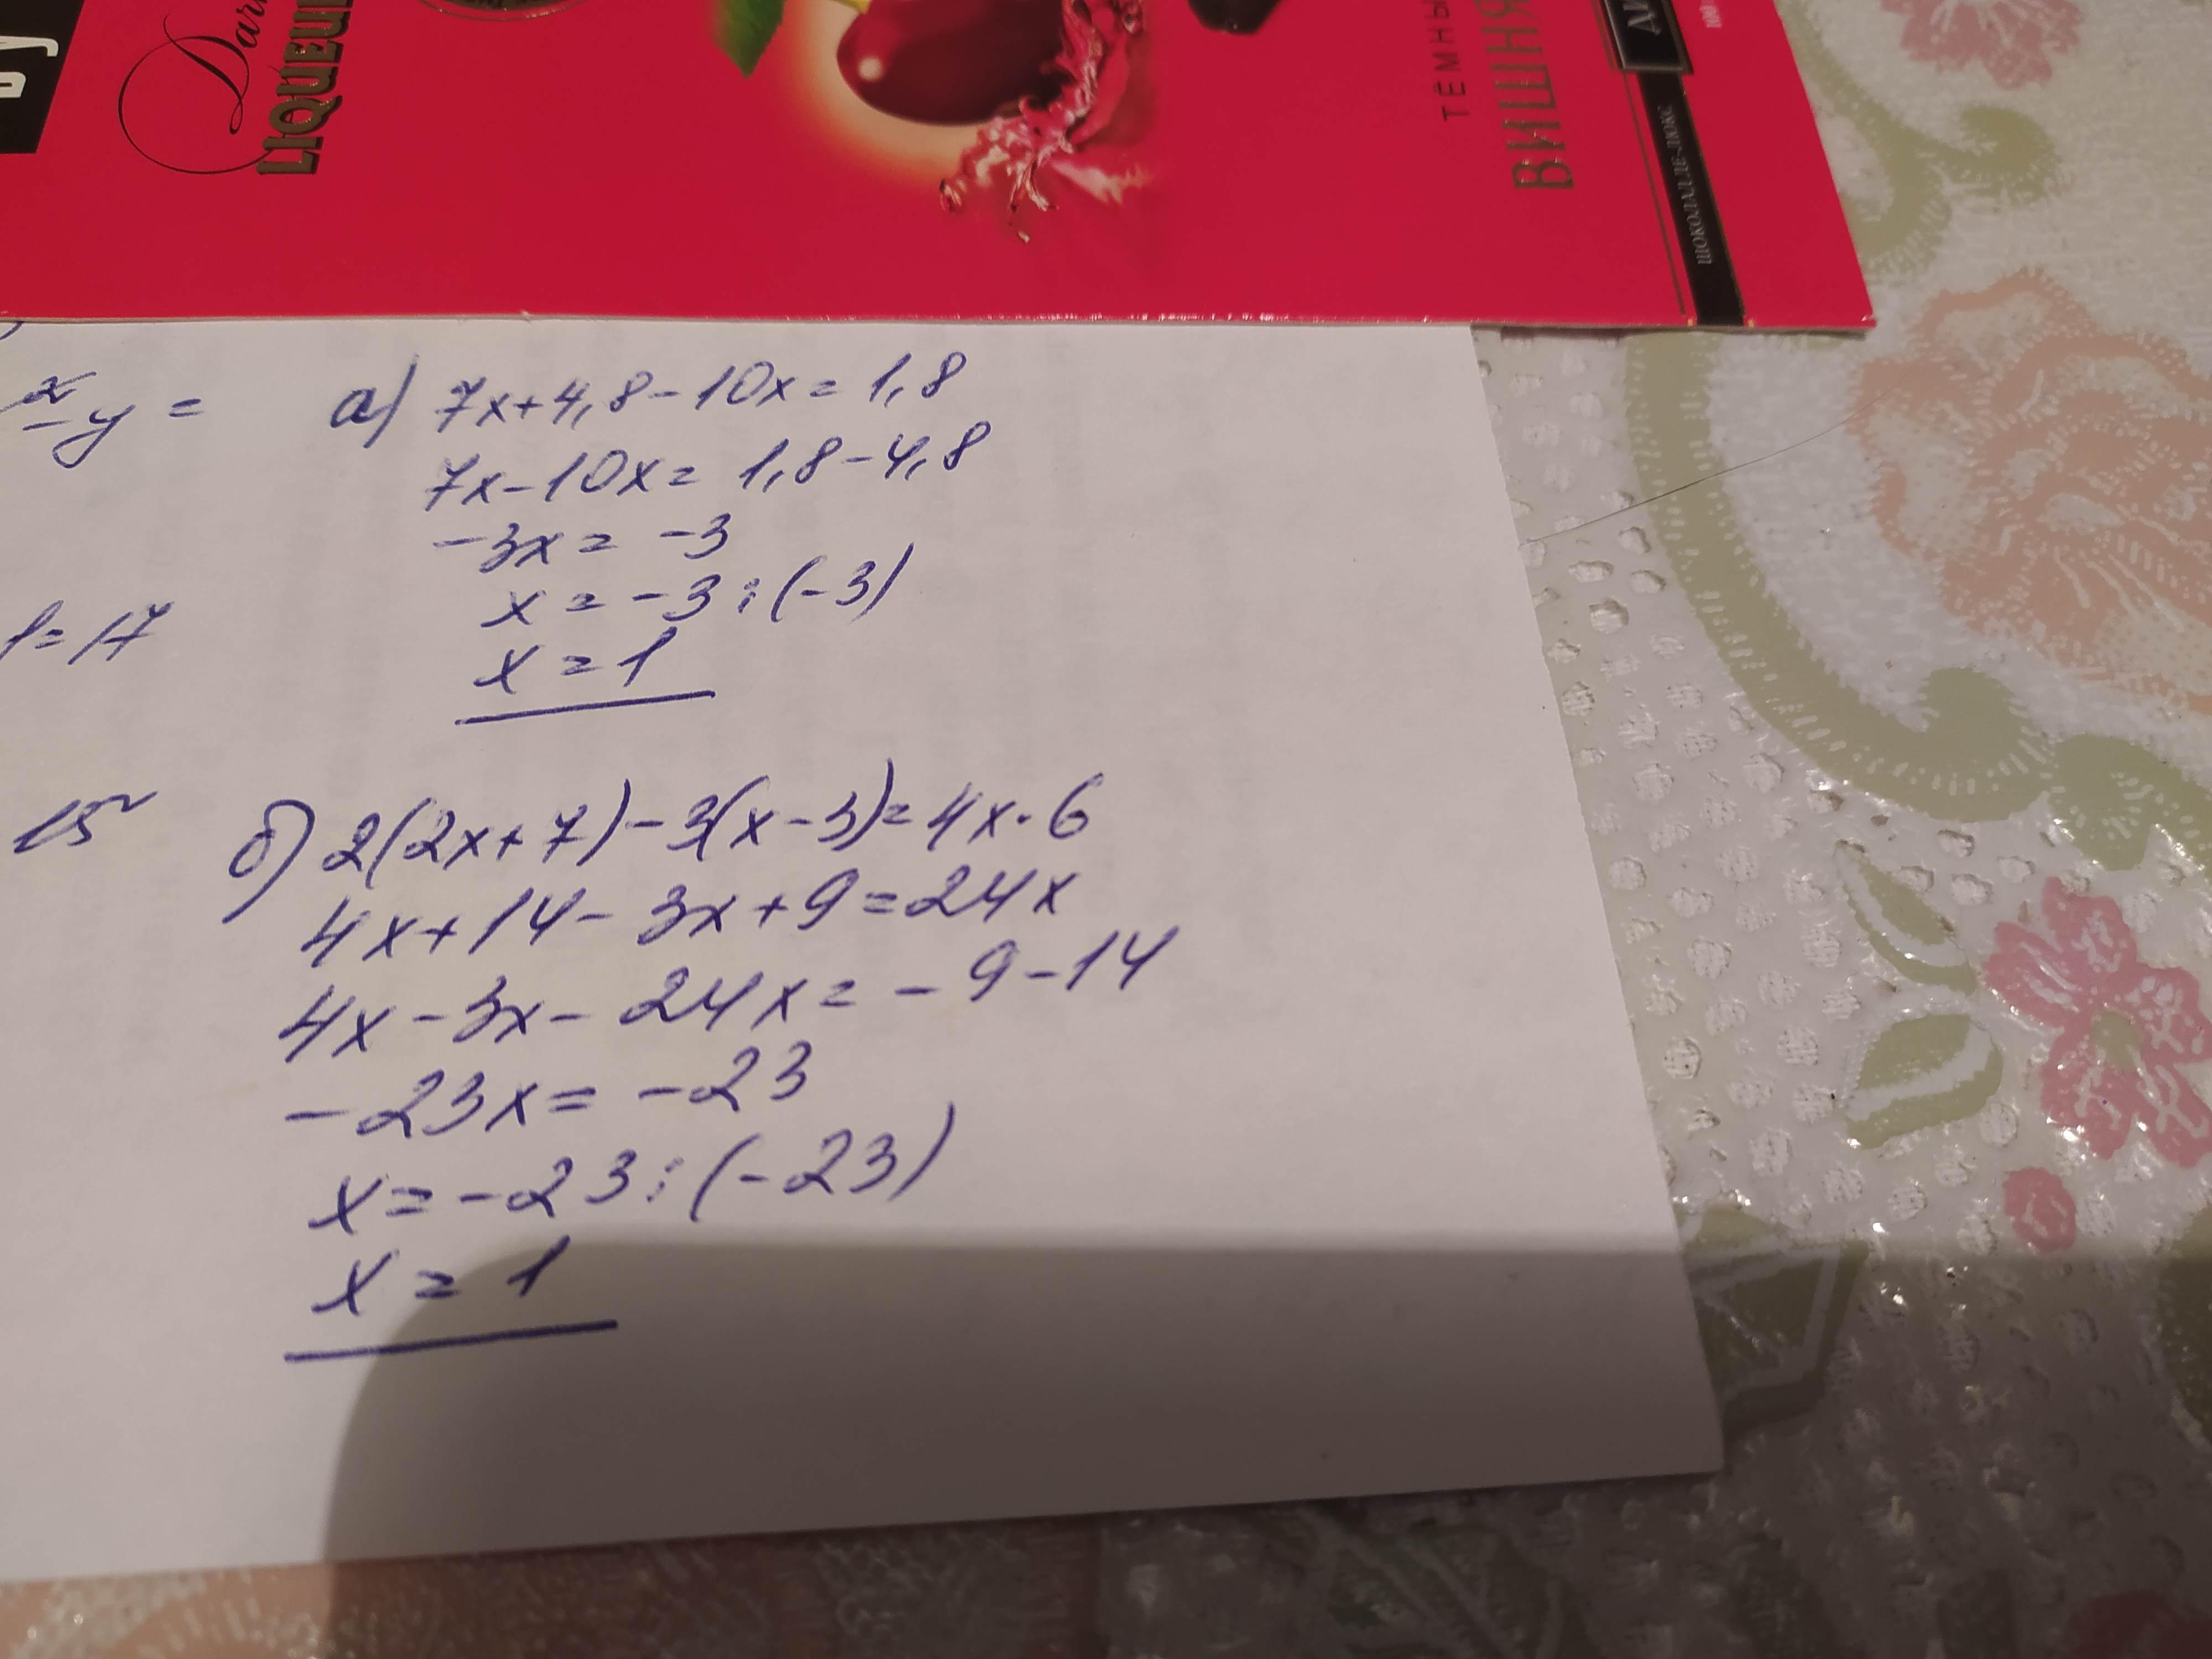 Dark
LIQUEUR
ТЁМНЫ
ВИШНЯ
ШОКОЛАДЛЕ-ЛЮКС
100
y =
1=17
15
а) 7x+4,8-10x=1,8
7x-10x=1,8-4,8
-3x=-3
x=-3:(-3)
x=1
б) 2(2x+7)-3(x-3)=4x·6
4x+14-3x+9=24x
4x-3x-24x=-9-14
-23x=-23
x=-23:(-23)
x=1